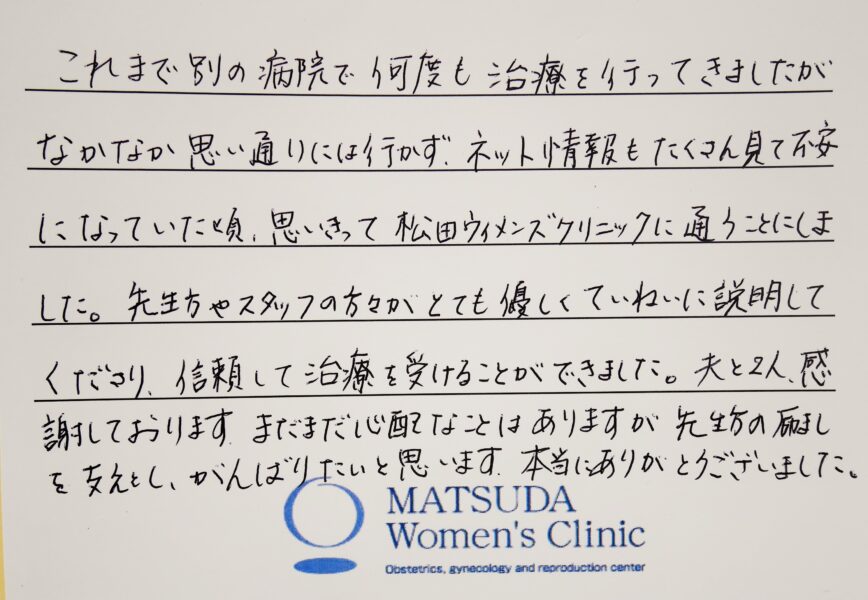 これまで別の病院で何度も治療を行ってきましたが
なかなか思い通りには行かず、ネット情報もたくさん見て不安
になっていた頃、思いきって松田ウィメンズクリニックに通うことにしま
した。先生方やスタッフの方々がとても優しくていねいに説明して
くださり、信頼して治療を受けることができました。夫と2人、感
謝しております。まだまだ心配なことはありますが先生方の励まし
を支えとし、がんばりたいと思います。本当にありがとうございました。
MATSUDA
Women's Clinic
Obstetrics, gynecology and reproduction center